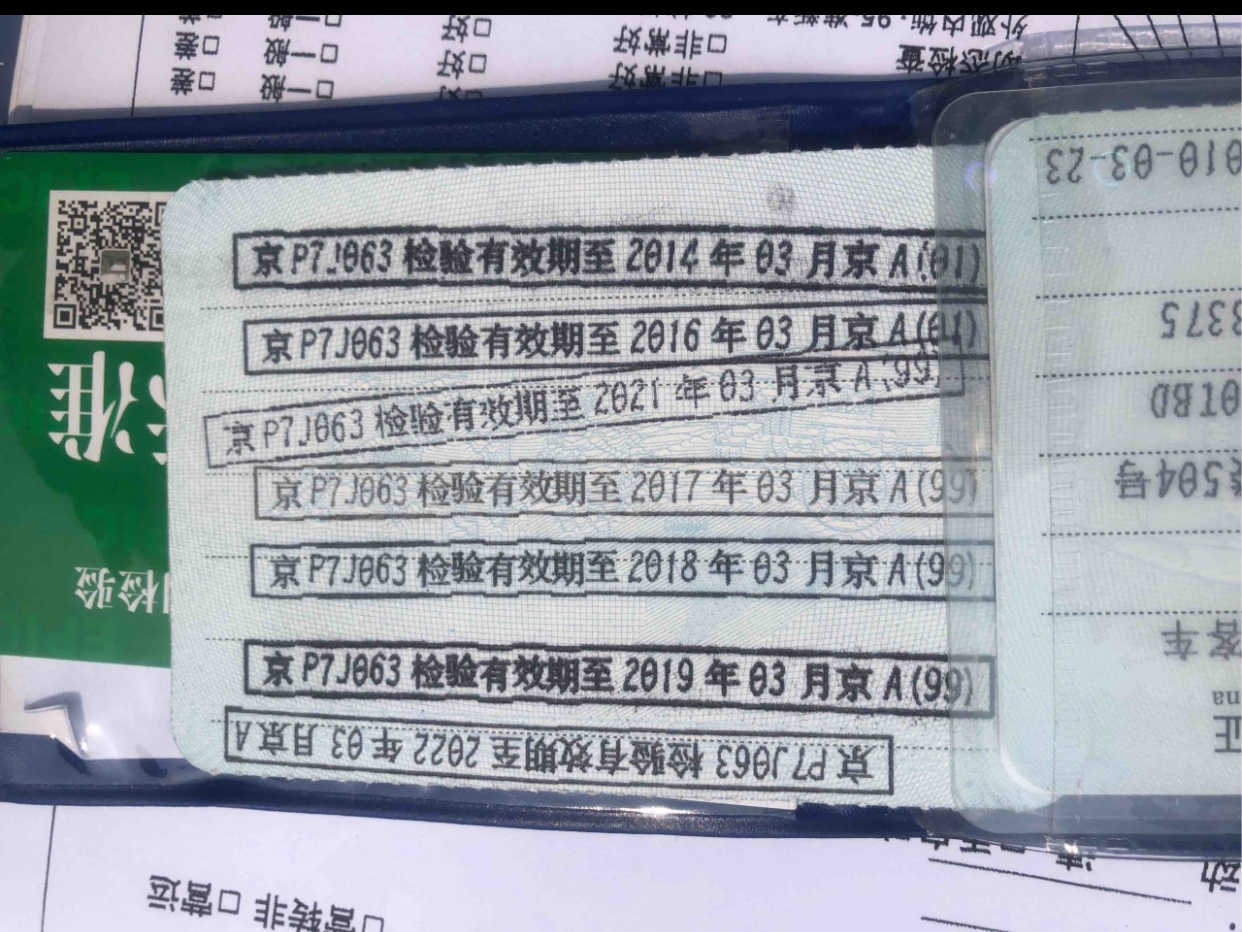 差 一般 好 非常好
差 一般 好 非常好 动态检查
京P7J063 检验有效期至 2014 年 03 月京 A(01)
京P7J063 检验有效期至 2016 年 03 月京 A(01)
京P7J063 检验有效期至 2021 年 03 月京 A(99)
京P7J063 检验有效期至 2017 年 03 月京 A(99)
京P7J063 检验有效期至 2018 年 03 月京 A(99)
京P7J063 检验有效期至 2019 年 03 月京 A(99)
京P7J063 检验有效期至 2022 年 03 月京 A
准
检验
010-03-23
3375
0TBD
504号
客车
na
证
□营转非 □营运